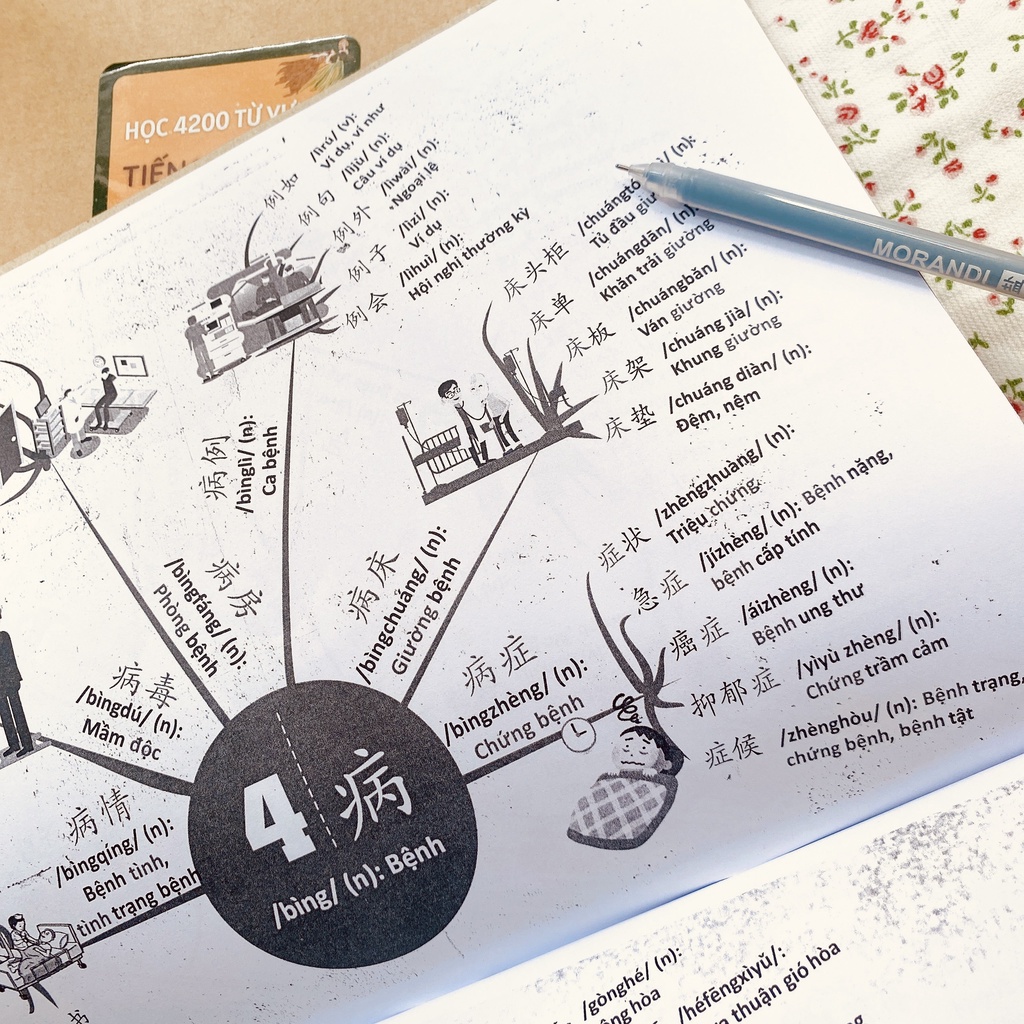 HỌC 4200 TỪ
例如
/lìrú/ (v):
Ví dụ, ví như
例句
/lìjù/ (n):
Câu ví dụ
例外
/lìwài/ (n):
Ngoại lệ
例子
/lìzi/ (n):
Ví dụ
例会
/lìhuì/ (n):
Hội nghị thường kỳ
病例
/bìnglì/ (n):
Ca bệnh
床头柜
Tủ đầu
床单
/chuángdān/ (n):
Khăn trải giường
床板
/chuángbǎn/ (n):
Ván giường
床架
/chuáng jià/ (n):
Khung giường
床垫
/chuáng diàn/ (n):
Đệm, nệm
病房
/bìngfáng/ (n):
Phòng bệnh
病床
/bìngchuáng/ (n):
Giường bệnh
症状
/zhèngzhuàng/ (n):
Triệu chứng
急症
/jízhèng/ (n): Bệnh nặng,
bệnh cấp tính
癌症
/áizhèng/ (n):
Bệnh ung thư
抑郁症
/yìyù zhèng/ (n):
Chứng trầm cảm
症候
/zhènghòu/ (n): Bệnh trạng,
chứng bệnh, bệnh tật
病症
/bìngzhèng/ (n):
Chứng bệnh
病毒
/bìngdú/ (n):
Mầm độc
病情
/bìngqíng/ (n):
Bệnh tình,
tình trạng bệnh
4 病
/bìng/ (n): Bệnh
MORANDI
/gònghé/ (n):
hòa
/héfēngxìyǔ/:
thuận gió hòa